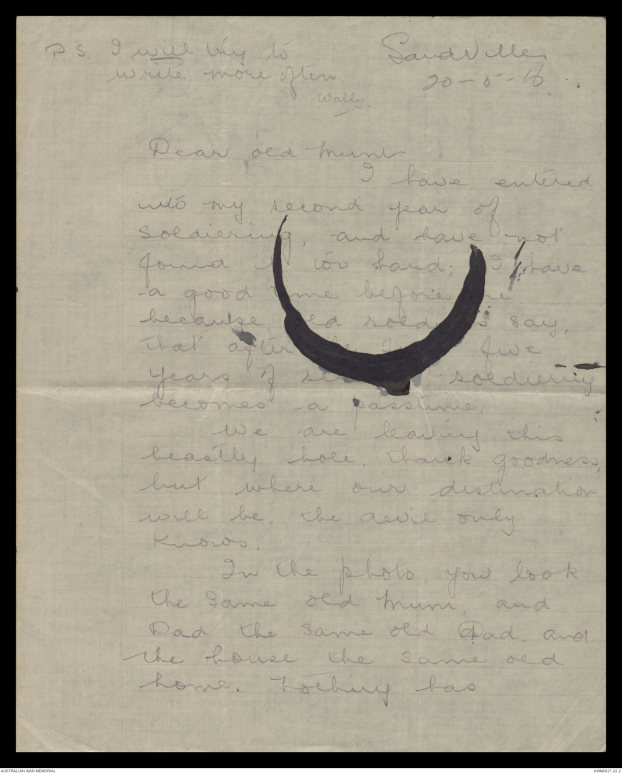 P.S. I will try to
write more often
Wally.
Sandville
20-5-16.
Dear old Mum
I have entered
into my second year of
soldiering, and have not
found it too hard; I have
a good time before me
because, old soldiers say,
that after the first five
years of soldiering
becomes a passtime.
We are leaving this
beastly hole. thank goodness,
but where our destination
will be. the devil only
knows.
In the photo, you look
the same old Mum, and
Dad the same old Dad. and
the house the same old
home. Nothing has
AUSTRALIAN WAR MEMORIAL
AWM2021.22.2